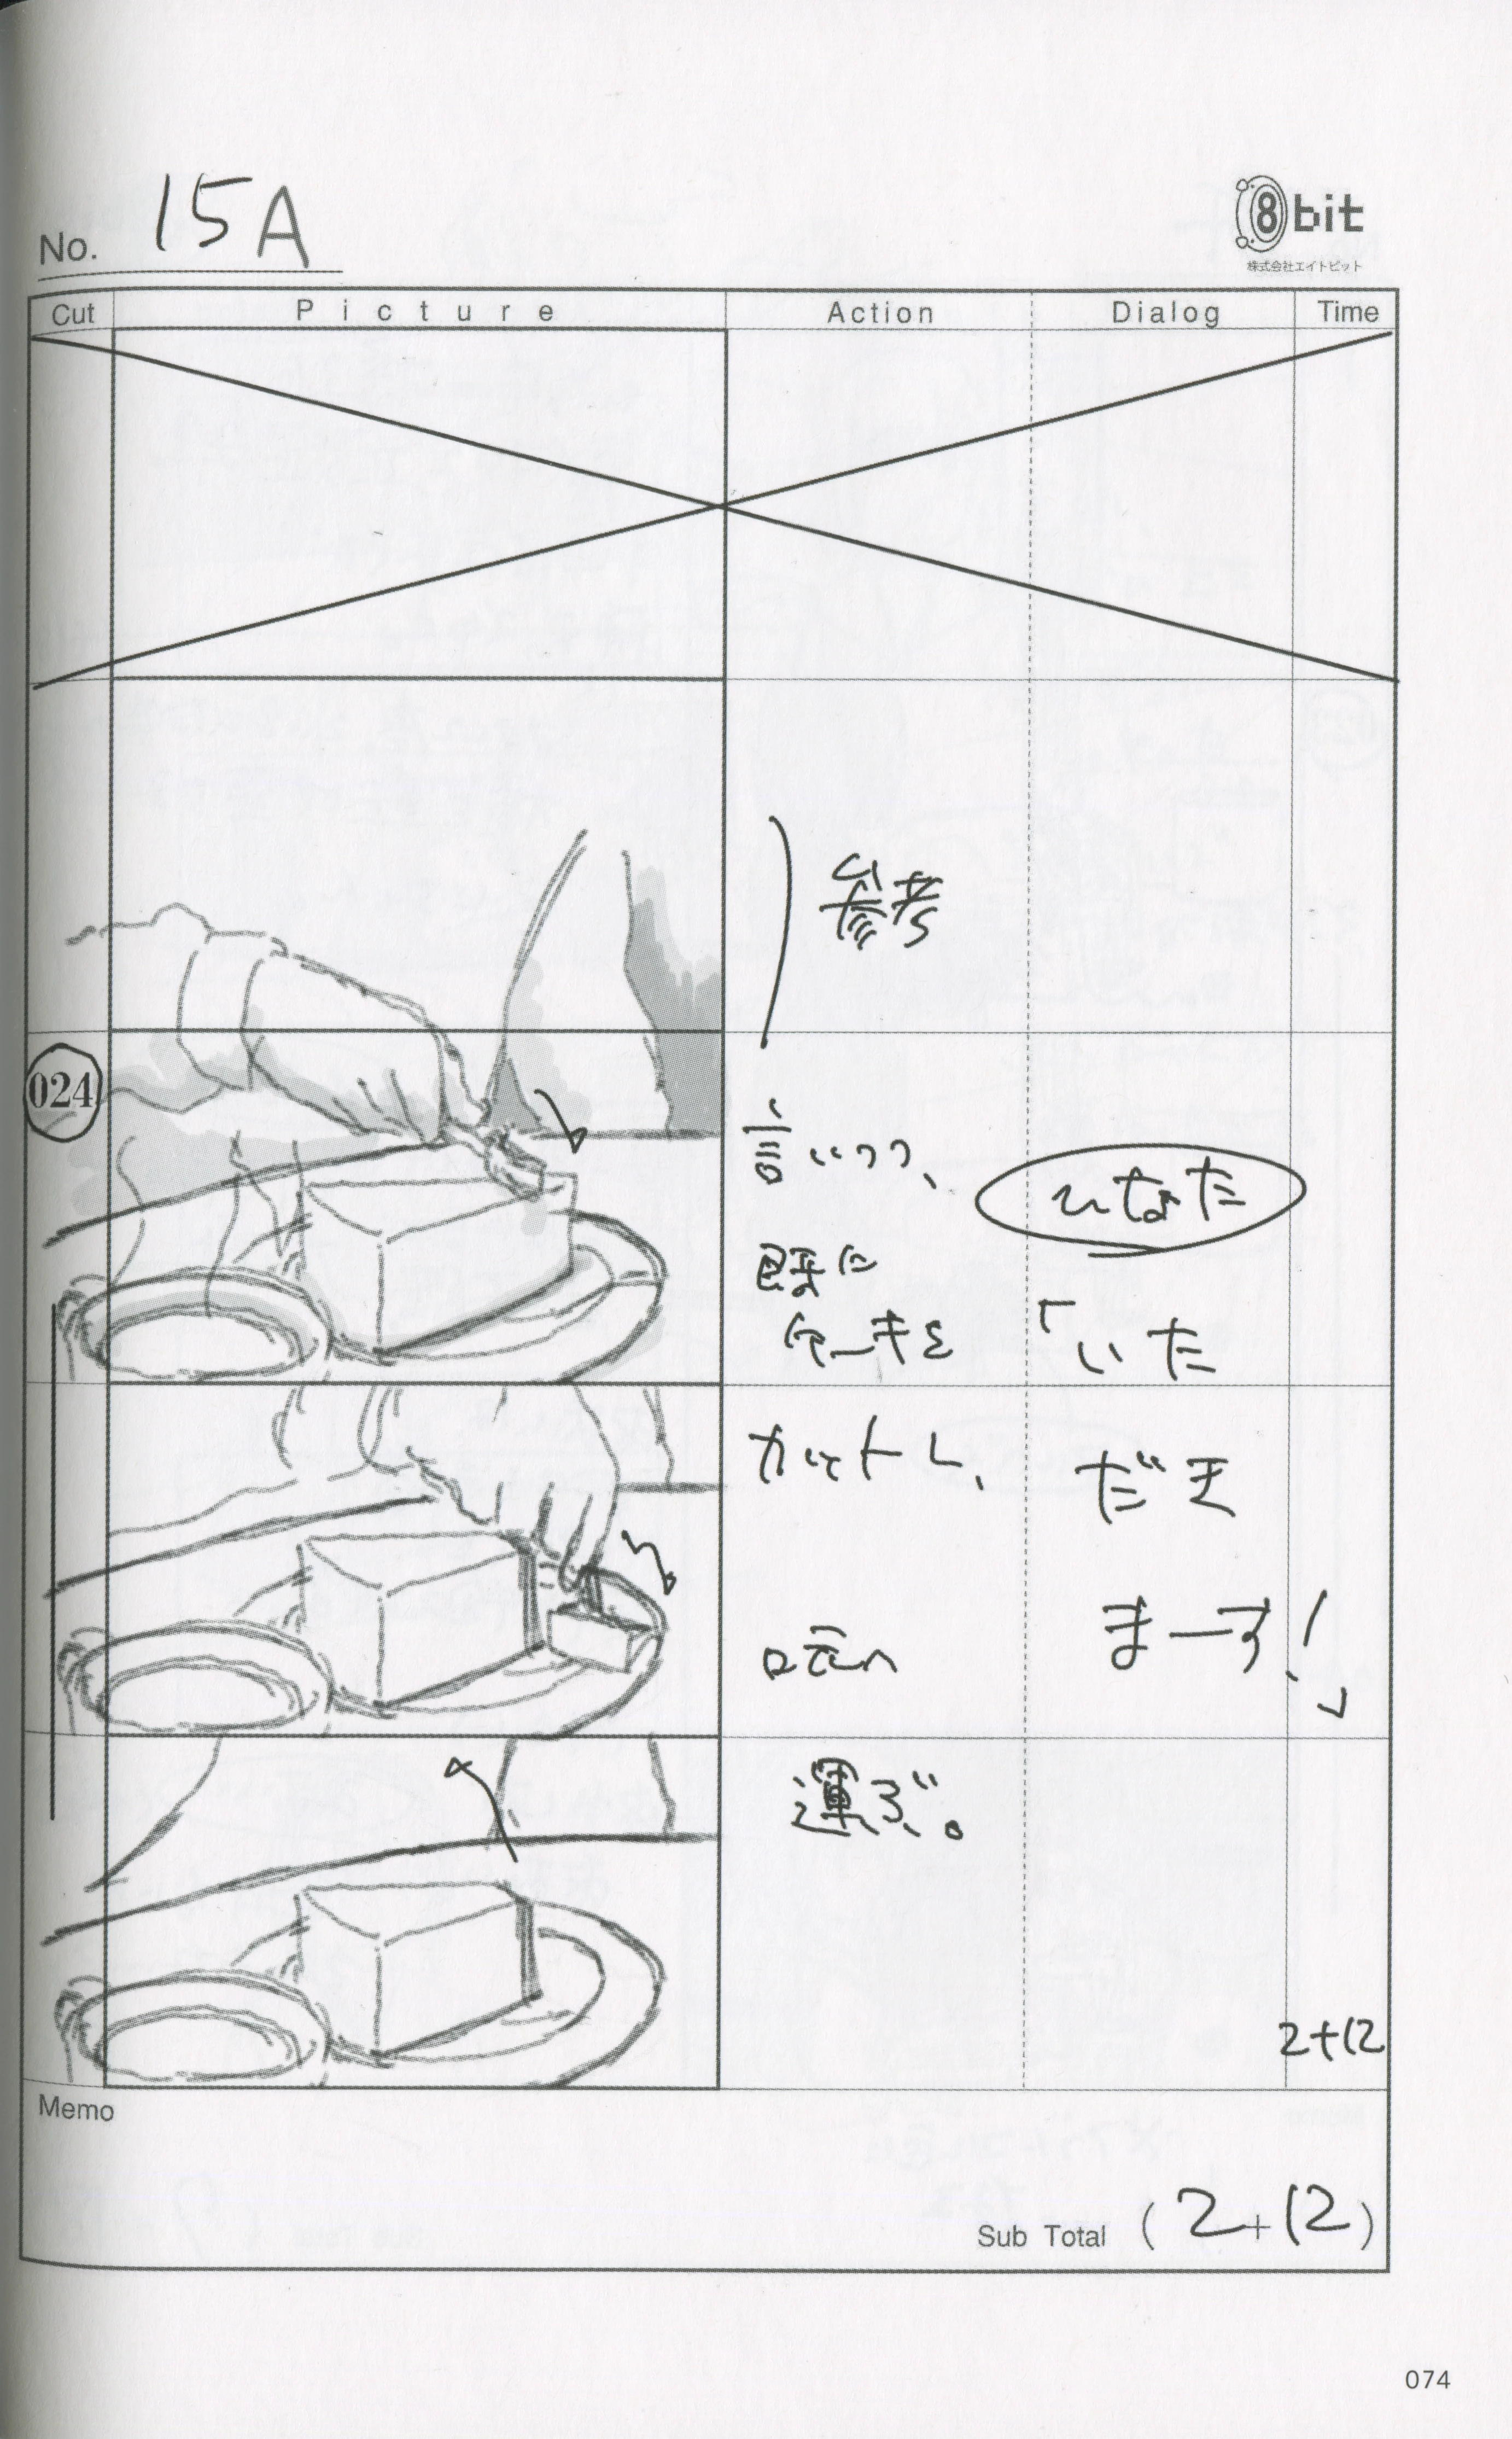 No. 15A
8bit
株式会社エイトビット
Cut Picture Action Dialog Time
参考
024
言いつつ、
既に
ケーキを
カットし、
口元へ
運ぶ。
ひなた
「いた
だき
まーす!」
2+12
Memo
Sub Total ( 2+12 )
074